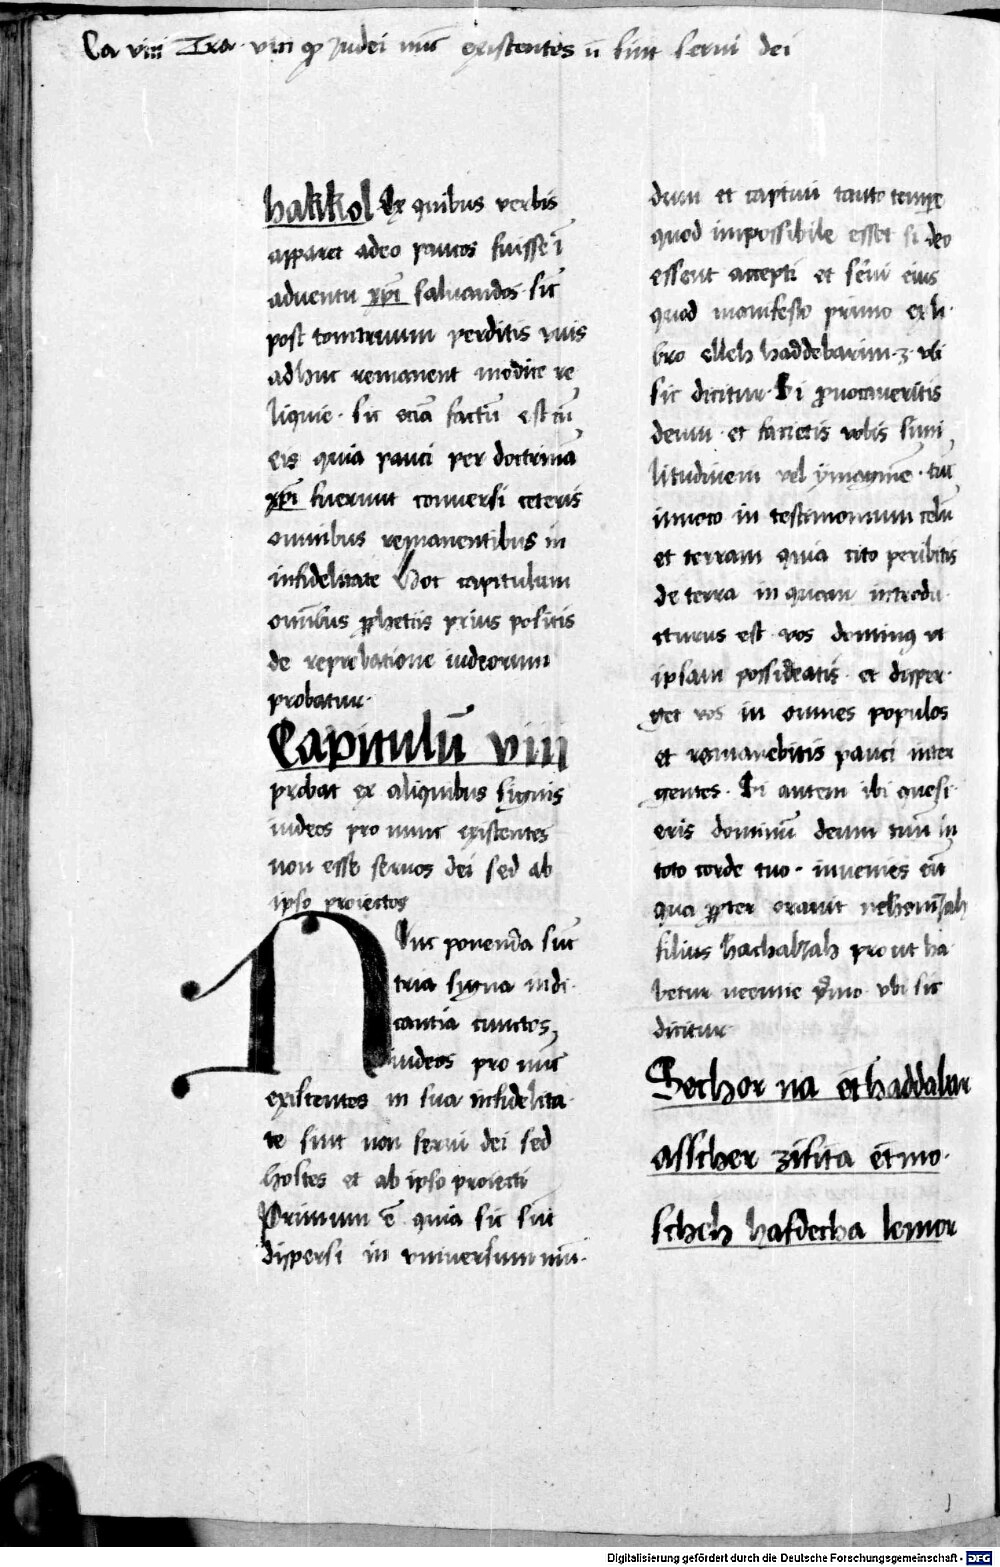 Ca viii Tra. viii qꝫ iudei nūc existentes n̄ sint serui dei
hakkol Ex quibus verbis
apparet adeo paucos fuisse ī
aduentu xp̄i saluandos sic̄
post tonitruum perditis vuis
adhuc remanent modice re
liquie. sic eciā factū est cū
eis quia pauci per doctrinā
xp̄i fuerunt conuersi ceteris
omnibus remanentibus in
infidelitate Hoc capitulum
om̄ibus ꝓphetiis prius positis
de reprobatione iudeorum
probatur.
Capitulū viii
probat ex aliquibus signis
iudeos pro nunc existentes
non esse seruos dei sed ab
ipso proiectos
Nunc ponenda sūt
tria signa indi-
cantia cunctos
iudeos pro nūc
existentes in sua infidelita-
te sint non serui dei sed
hostes et ab ipso proiecti
Primum ē quia sic sūt
dispersi in vniuersum mū-
dum et captiui tanto tempe
quod impossibile esset si deo
essent accepti et s̄ui eius
quod manifesto primo ex li-
bro elleh haddebarim .3. vbi
sic dicitur. Si ꝓuocaueritis
deum et facietis vobis simi
litudinem vel ymaginē. tūc
inuoco in testimonium celū
et terram quia cito peribitis
de terra in quam introdu-
cturus est vos dominꝯ vt
ipsam possideatis et disper-
get vos in omnes populos
et remanebitis pauci inter
gentes. Si autem ibi quesi-
eris dominū deum tuū in
toto corde tuo. inuenies eū
qua ꝓpter orauit nehemȝah
filius hachalȝah prout ha-
betur neemie p̄mo vbi sic
dicitur
Sechor na et haddabar
asscher zifita et mo-
scheh hafdecha lemor